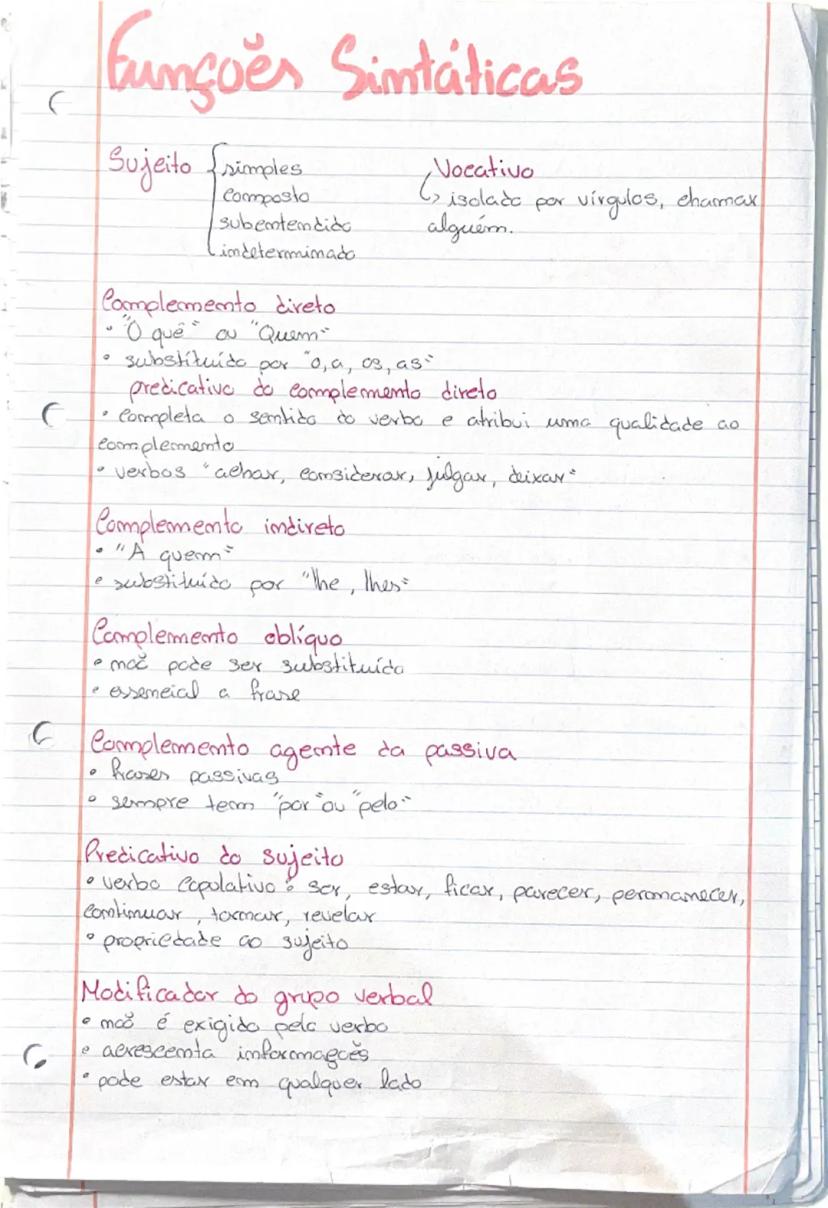 Funções Sintáticas
Sujeito { simples
composto
subentendido
indeterminado
Vocativo
↳ isolado por vírgulas, chamar
alguém.
Complemento direto
• "O quê" ou "Quem"
• substituído por "o, a, os, as"
predicativo do complemento direto
• completa o sentido do verbo e atribui uma qualidade ao
complemento
• verbos "achar, considerar, julgar, deixar"
Complemento indireto
• "A quem"
• substituído por "lhe, lhes"
Complemento oblíquo
• não pode ser substituído
• essencial a frase
Complemento agente da passiva
• frases passivas
• sempre tem "por" ou "pelo"
Predicativo do sujeito
• verbo copulativo: ser, estar, ficar, parecer, permanecer,
continuar, tornar, revelar
• propriedade ao sujeito
Modificador do grupo verbal
• não é exigido pelo verbo
• acrescenta informações
• pode estar em qualquer lado